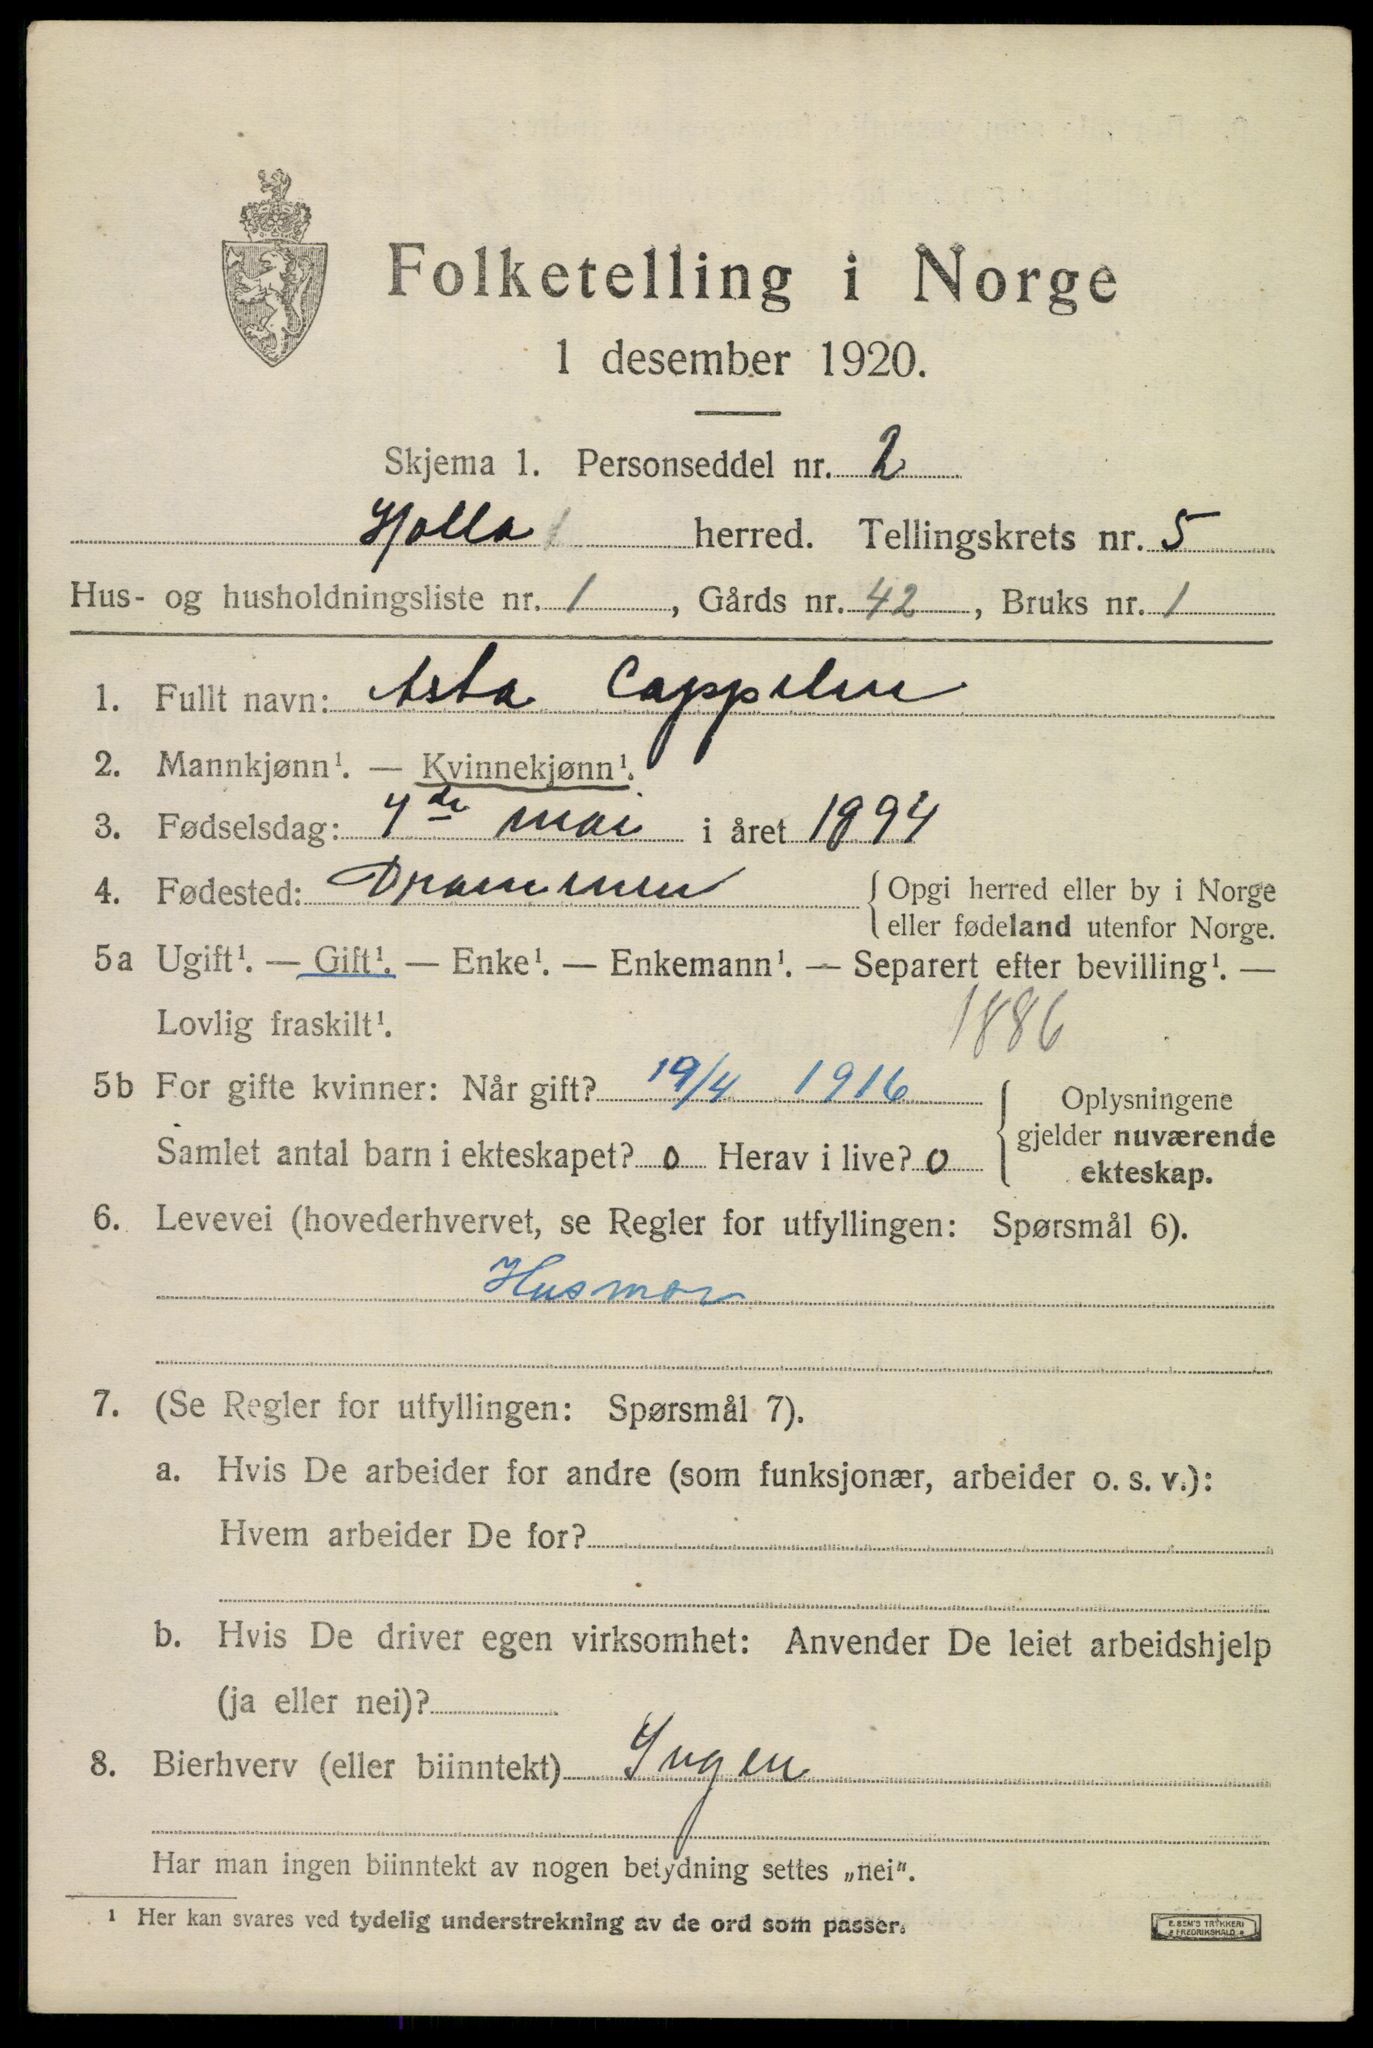 Folketelling i Norge
1 desember 1920.
Skjema 1. Personseddel nr. 2
Holla herred. Tellingskrets nr. 5
Hus- og husholdningsliste nr. 1, Gårds nr. 42, Bruks nr. 1
1. Fullt navn: Asta Cappelen
2. Mannkjønn¹. — Kvinnekjønn¹.
3. Fødselsdag: 4de mai i året 1894
4. Fødested: Drammen {Opgi herred eller by i Norge
eller fødeland utenfor Norge.
5a Ugift¹. — Gift¹. — Enke¹. — Enkemann¹. — Separert efter bevilling¹. —
Lovlig fraskilt¹. 1886
5b For gifte kvinner: Når gift? 19/4 1916
Samlet antal barn i ekteskapet? 0 Herav i live? 0
{Oplysningene
gjelder nuværende
ekteskap.
6. Levevei (hovederhvervet, se Regler for utfyllingen: Spørsmål 6).
Husmor
7. (Se Regler for utfyllingen: Spørsmål 7).
a. Hvis De arbeider for andre (som funksjonær, arbeider o. s. v.):
Hvem arbeider De for?
b. Hvis De driver egen virksomhet: Anvender De leiet arbeidshjelp
(ja eller nei)?
8. Bierhverv (eller biinntekt) Ingen
Har man ingen biinntekt av nogen betydning settes „nei".
¹ Her kan svares ved tydelig understrekning av de ord som passer.
E. SEM'S TRYKKERI
FREDRIKSHALD